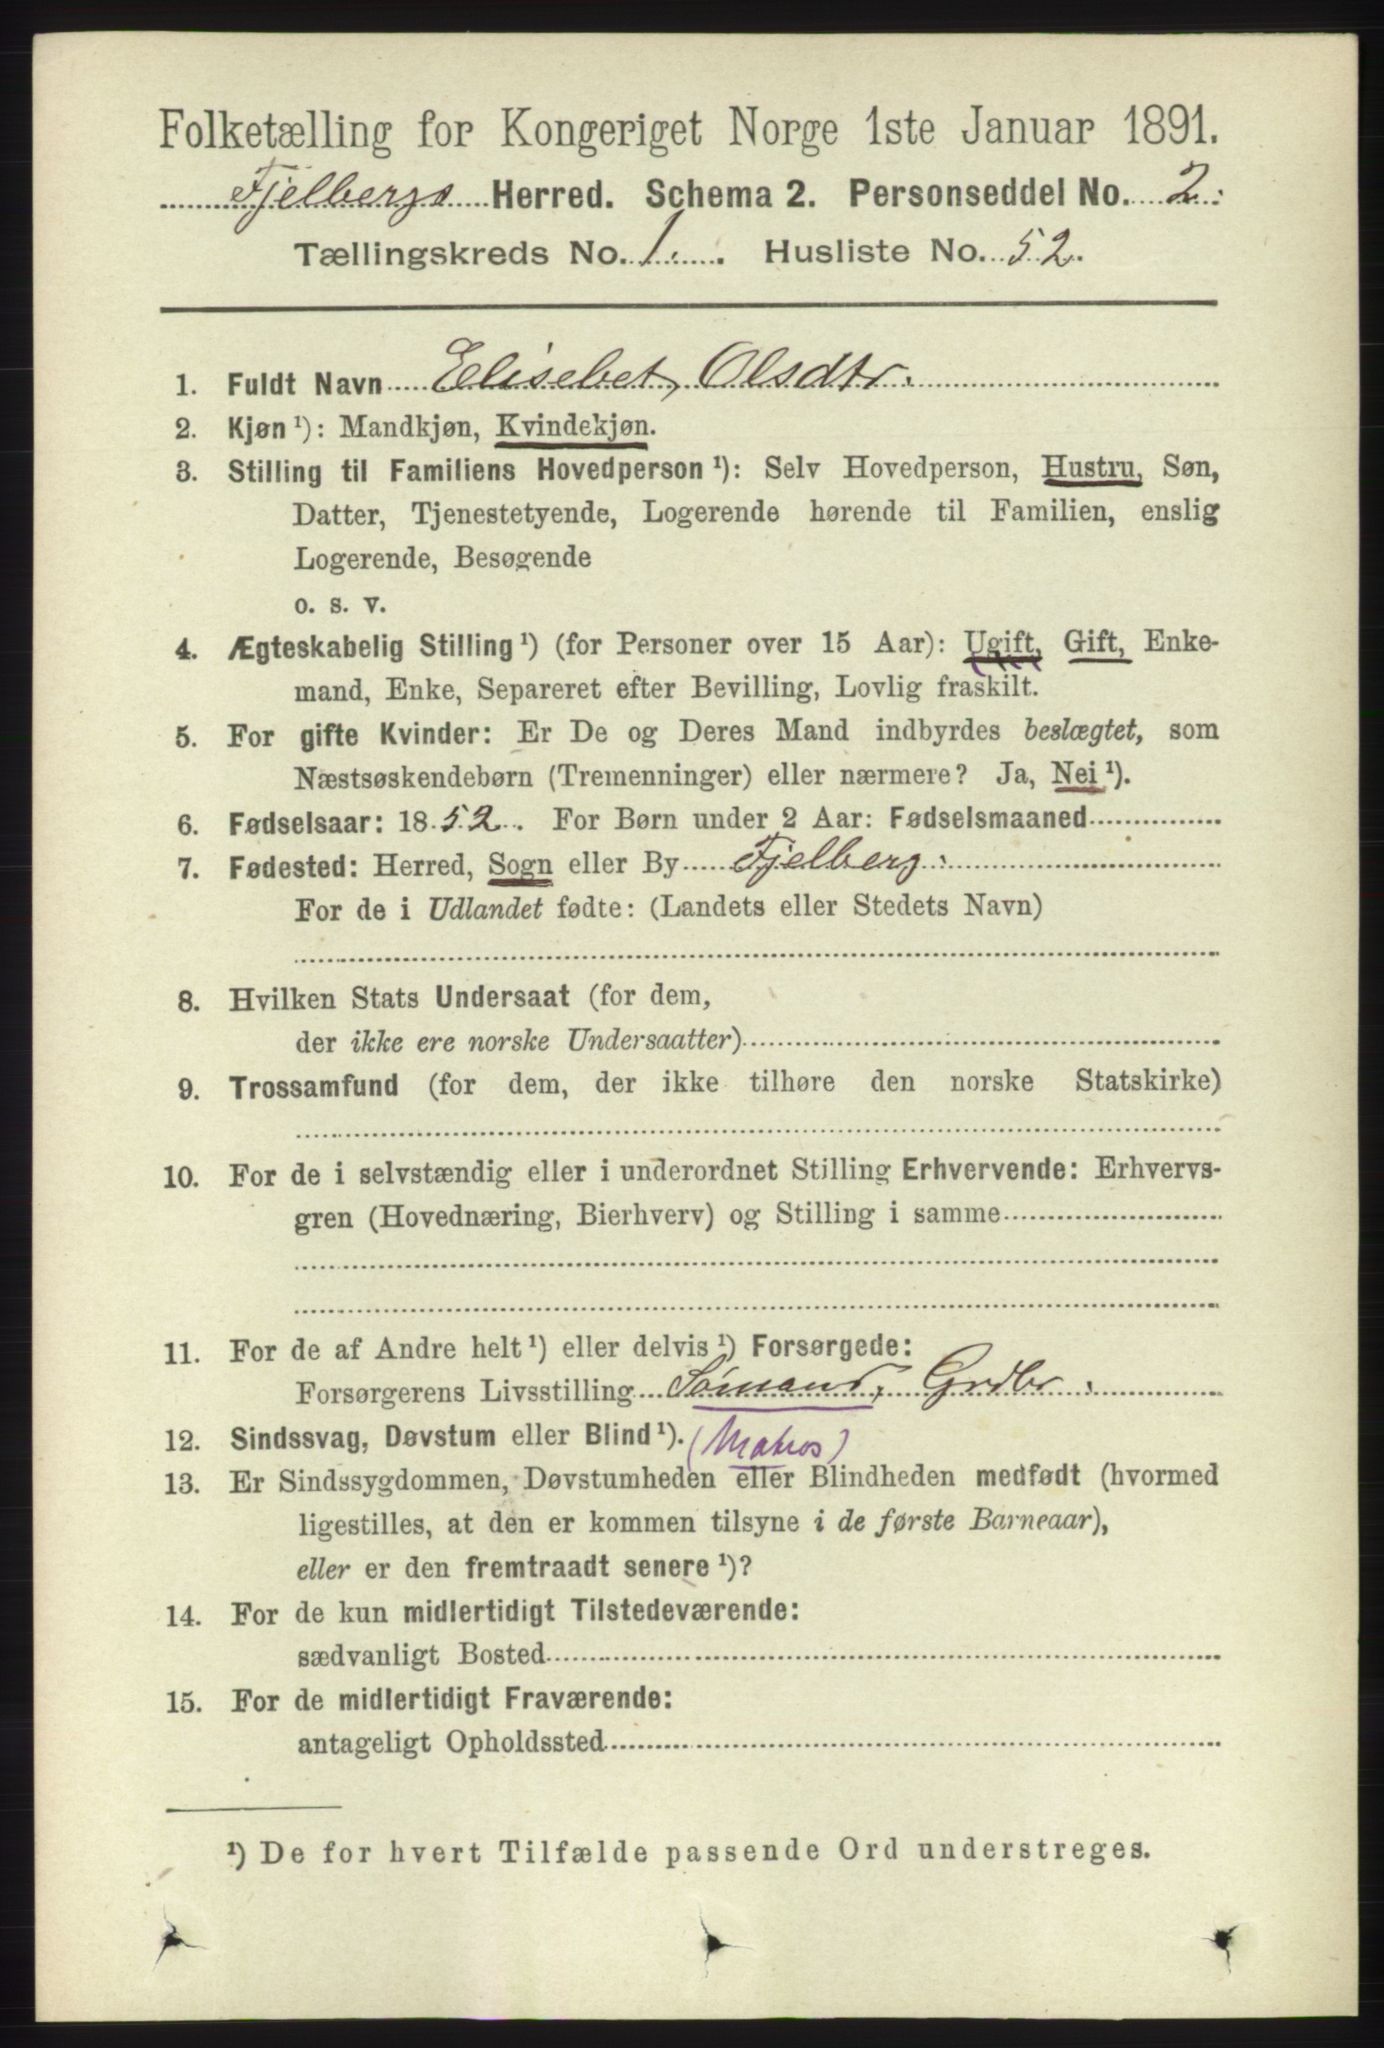 Folketælling for Kongeriget Norge 1ste Januar 1891.
Fjelbergs Herred. Schema 2. Personseddel No. 2.
Tællingskreds No. 1. Husliste No. 52.
1. Fuldt Navn Elisebet, Olsdtr.
2. Kjøn ¹): Mandkjøn, Kvindekjøn.
3. Stilling til Familiens Hovedperson ¹): Selv Hovedperson, Hustru, Søn,
Datter, Tjenestetyende, Logerende hørende til Familien, enslig
Logerende, Besøgende
o. s. v.
4. Ægteskabelig Stilling ¹) (for Personer over 15 Aar): Ugift, Gift, Enke-
mand, Enke, Separeret efter Bevilling, Lovlig fraskilt.
5. For gifte Kvinder: Er De og Deres Mand indbyrdes beslægtet, som
Næstsøskendebørn (Tremenninger) eller nærmere? Ja, Nei ¹).
6. Fødselsaar: 1852. For Børn under 2 Aar: Fødselsmaaned
7. Fødested: Herred, Sogn eller By Fjelberg.
For de i Udlandet fødte: (Landets eller Stedets Navn)
8. Hvilken Stats Undersaat (for dem,
der ikke ere norske Undersaatter)
9. Trossamfund (for dem, der ikke tilhøre den norske Statskirke)
10. For de i selvstændig eller i underordnet Stilling Erhvervende: Erhvervs-
gren (Hovednæring, Bierhverv) og Stilling i samme
11. For de af Andre helt ¹) eller delvis ¹) Forsørgede:
Forsørgerens Livsstilling Sømand, Grdbr.
12. Sindssvag, Døvstum eller Blind ¹). (Matros)
13. Er Sindssygdommen, Døvstumheden eller Blindheden medfødt (hvormed
ligestilles, at den er kommen tilsyne i de første Barneaar),
eller er den fremtraadt senere ¹)?
14. For de kun midlertidigt Tilstedeværende:
sædvanligt Bosted
15. For de midlertidigt Fraværende:
antageligt Opholdssted
¹) De for hvert Tilfælde passende Ord understreges.